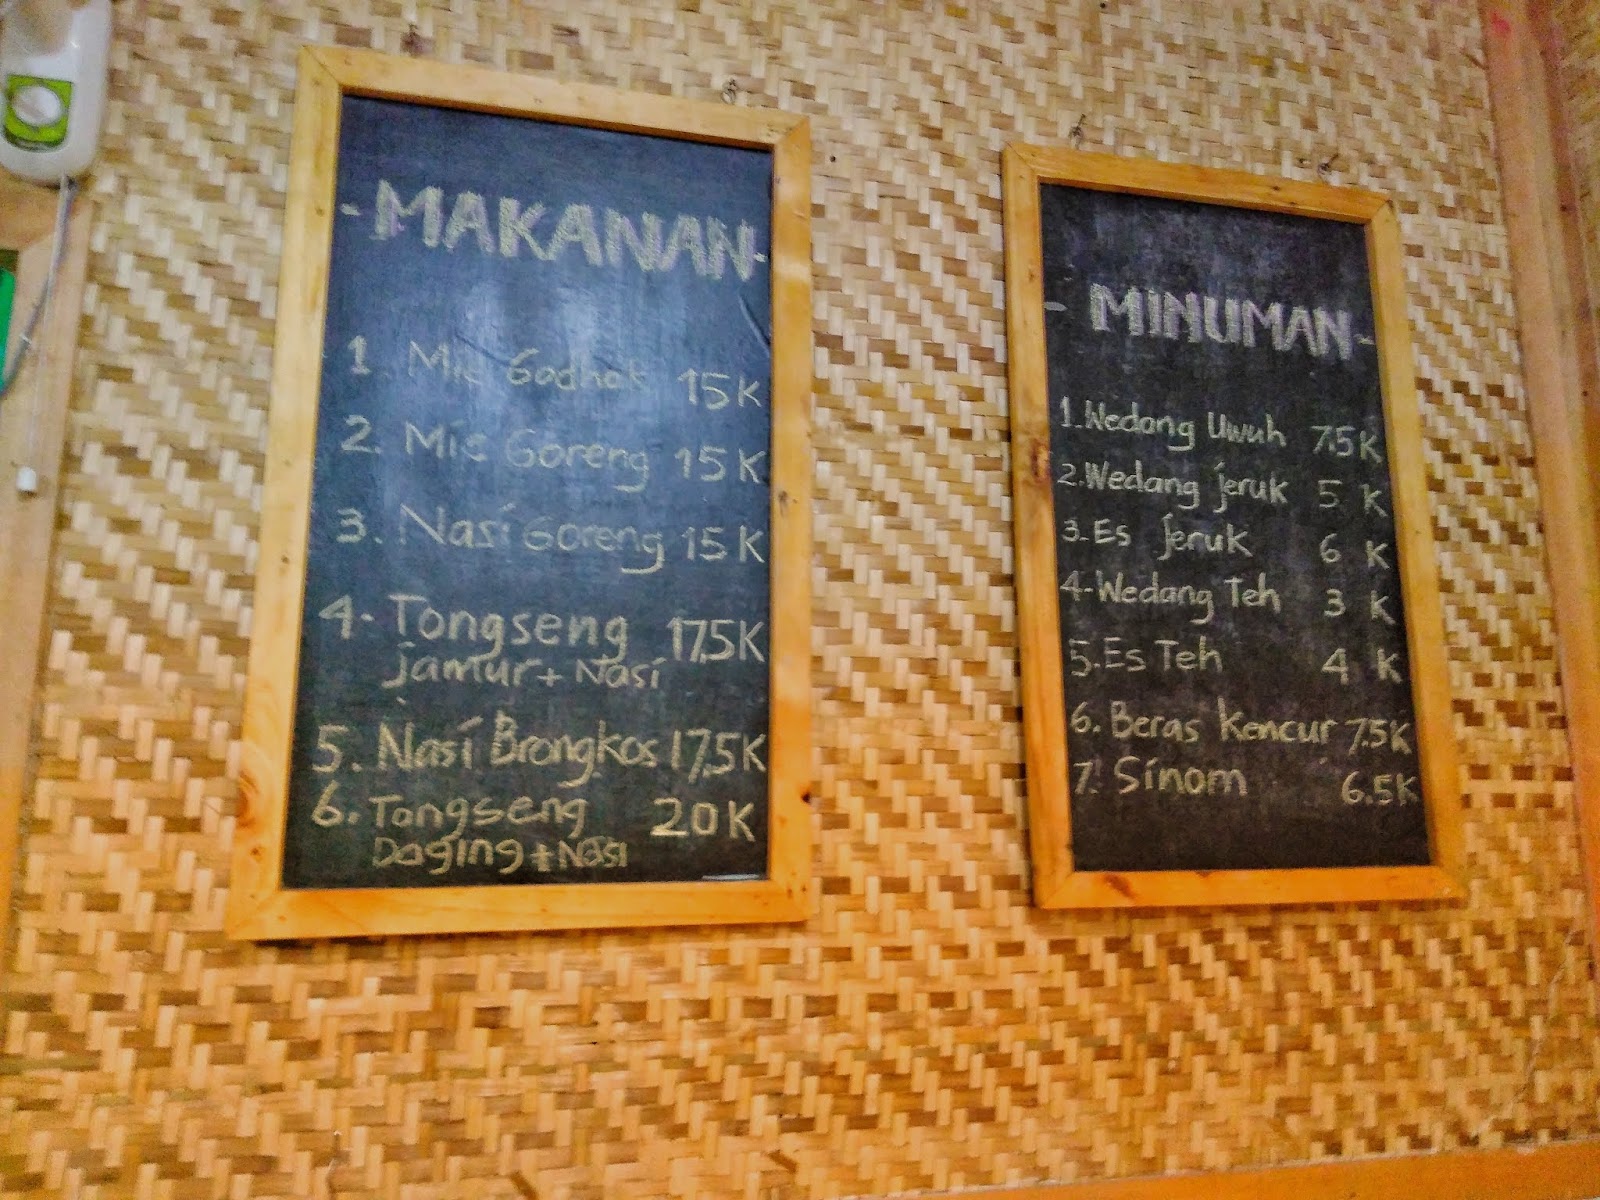 - MAKANAN -
1 Mie Godhok 15K
2. Mie Goreng 15K
3. Nasi Goreng 15K
4- Tongseng 17.5K
jamur + Nasi
5. Nasi Brongkos 17.5K
6. Tongseng 20K
Daging + Nasi
- MINUMAN -
1. Wedang Uwuh 7.5K
2. Wedang jeruk 5 K
3- Es jeruk 6 K
4- Wedang Teh 3 K
5. Es Teh 4 K
6. Beras Kencur 7.5K
7. Sinom 6.5K